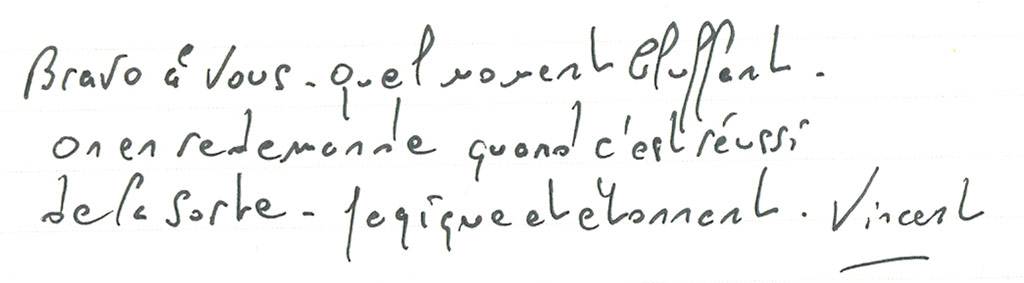 Bravo à vous. Quel moment bluffant.
on en redemande quand c'est réussi
de la sorte. Magique et étonnant. Vincent